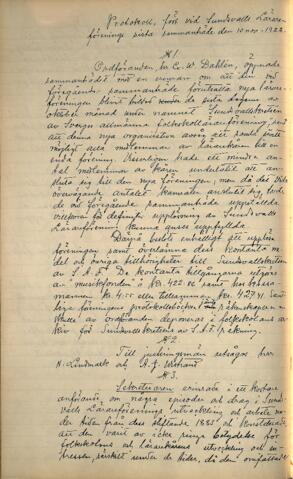 Protokoll, fört vid Sundsvalls Lärare-
förenings sista sammanträde den 10 nov. 1922.
§ 1.
Ordföranden, hr C. W. Dahlén, öppnade
sammanträdet med en erinran om att den vid
föregående sammanträde förutsatta nya lärare-
föreningen blivit bildad under de sista dagarna av
oktober månad under namnet Sundsvallskretsen
av Sveriges allmänna folkskollärareförening, samt
att denna nya organisation avsåg att samla
möjligt alla medlemmar av lärarekåren i en
enda förening. Visserligen hade ett mindre an-
tal medlemmar av kåren underlåtit att an-
sluta sig till den nya föreningen, men då det
övervägande antalet kamrater anslutit sig, borde
de vid föregående sammanträde uppställda
villkoren för definitiv upplösning av Sundsvalls
Lärareförening kunna anses uppfyllda.
Därpå beslöts enhälligt att upplösa
föreningen samt överlämna dess kontanta me-
del och övriga tillhörigheter till Sundsvallskretsen
av S. A. F. De kontanta tillgångarna utgöras
av musikfonden å kr. 422.86 samt
kr. 4.55 eller tillsammans kr. 427.41.
föreningens protokollsböcker
av ordföranden deponeras i folkskolans ar-
kiv för Sundsvallskretsens av S. A. F. räkning.
§ 2.
Till justeringsmän utsågos hrr
H. Lindmark och A. J.
§ 3.
Sekreteraren erinrade i ett kortare
anförande om några episoder och drag i Sund-
svalls Lärareförenings utveckling och arbete un-
der tiden från dess stiftande 1885 och
att den varit av icke ringa betydelse för
folkskolans och lärarekårens utveckling och in-
tressen, särskilt under de tider, då den omfattade